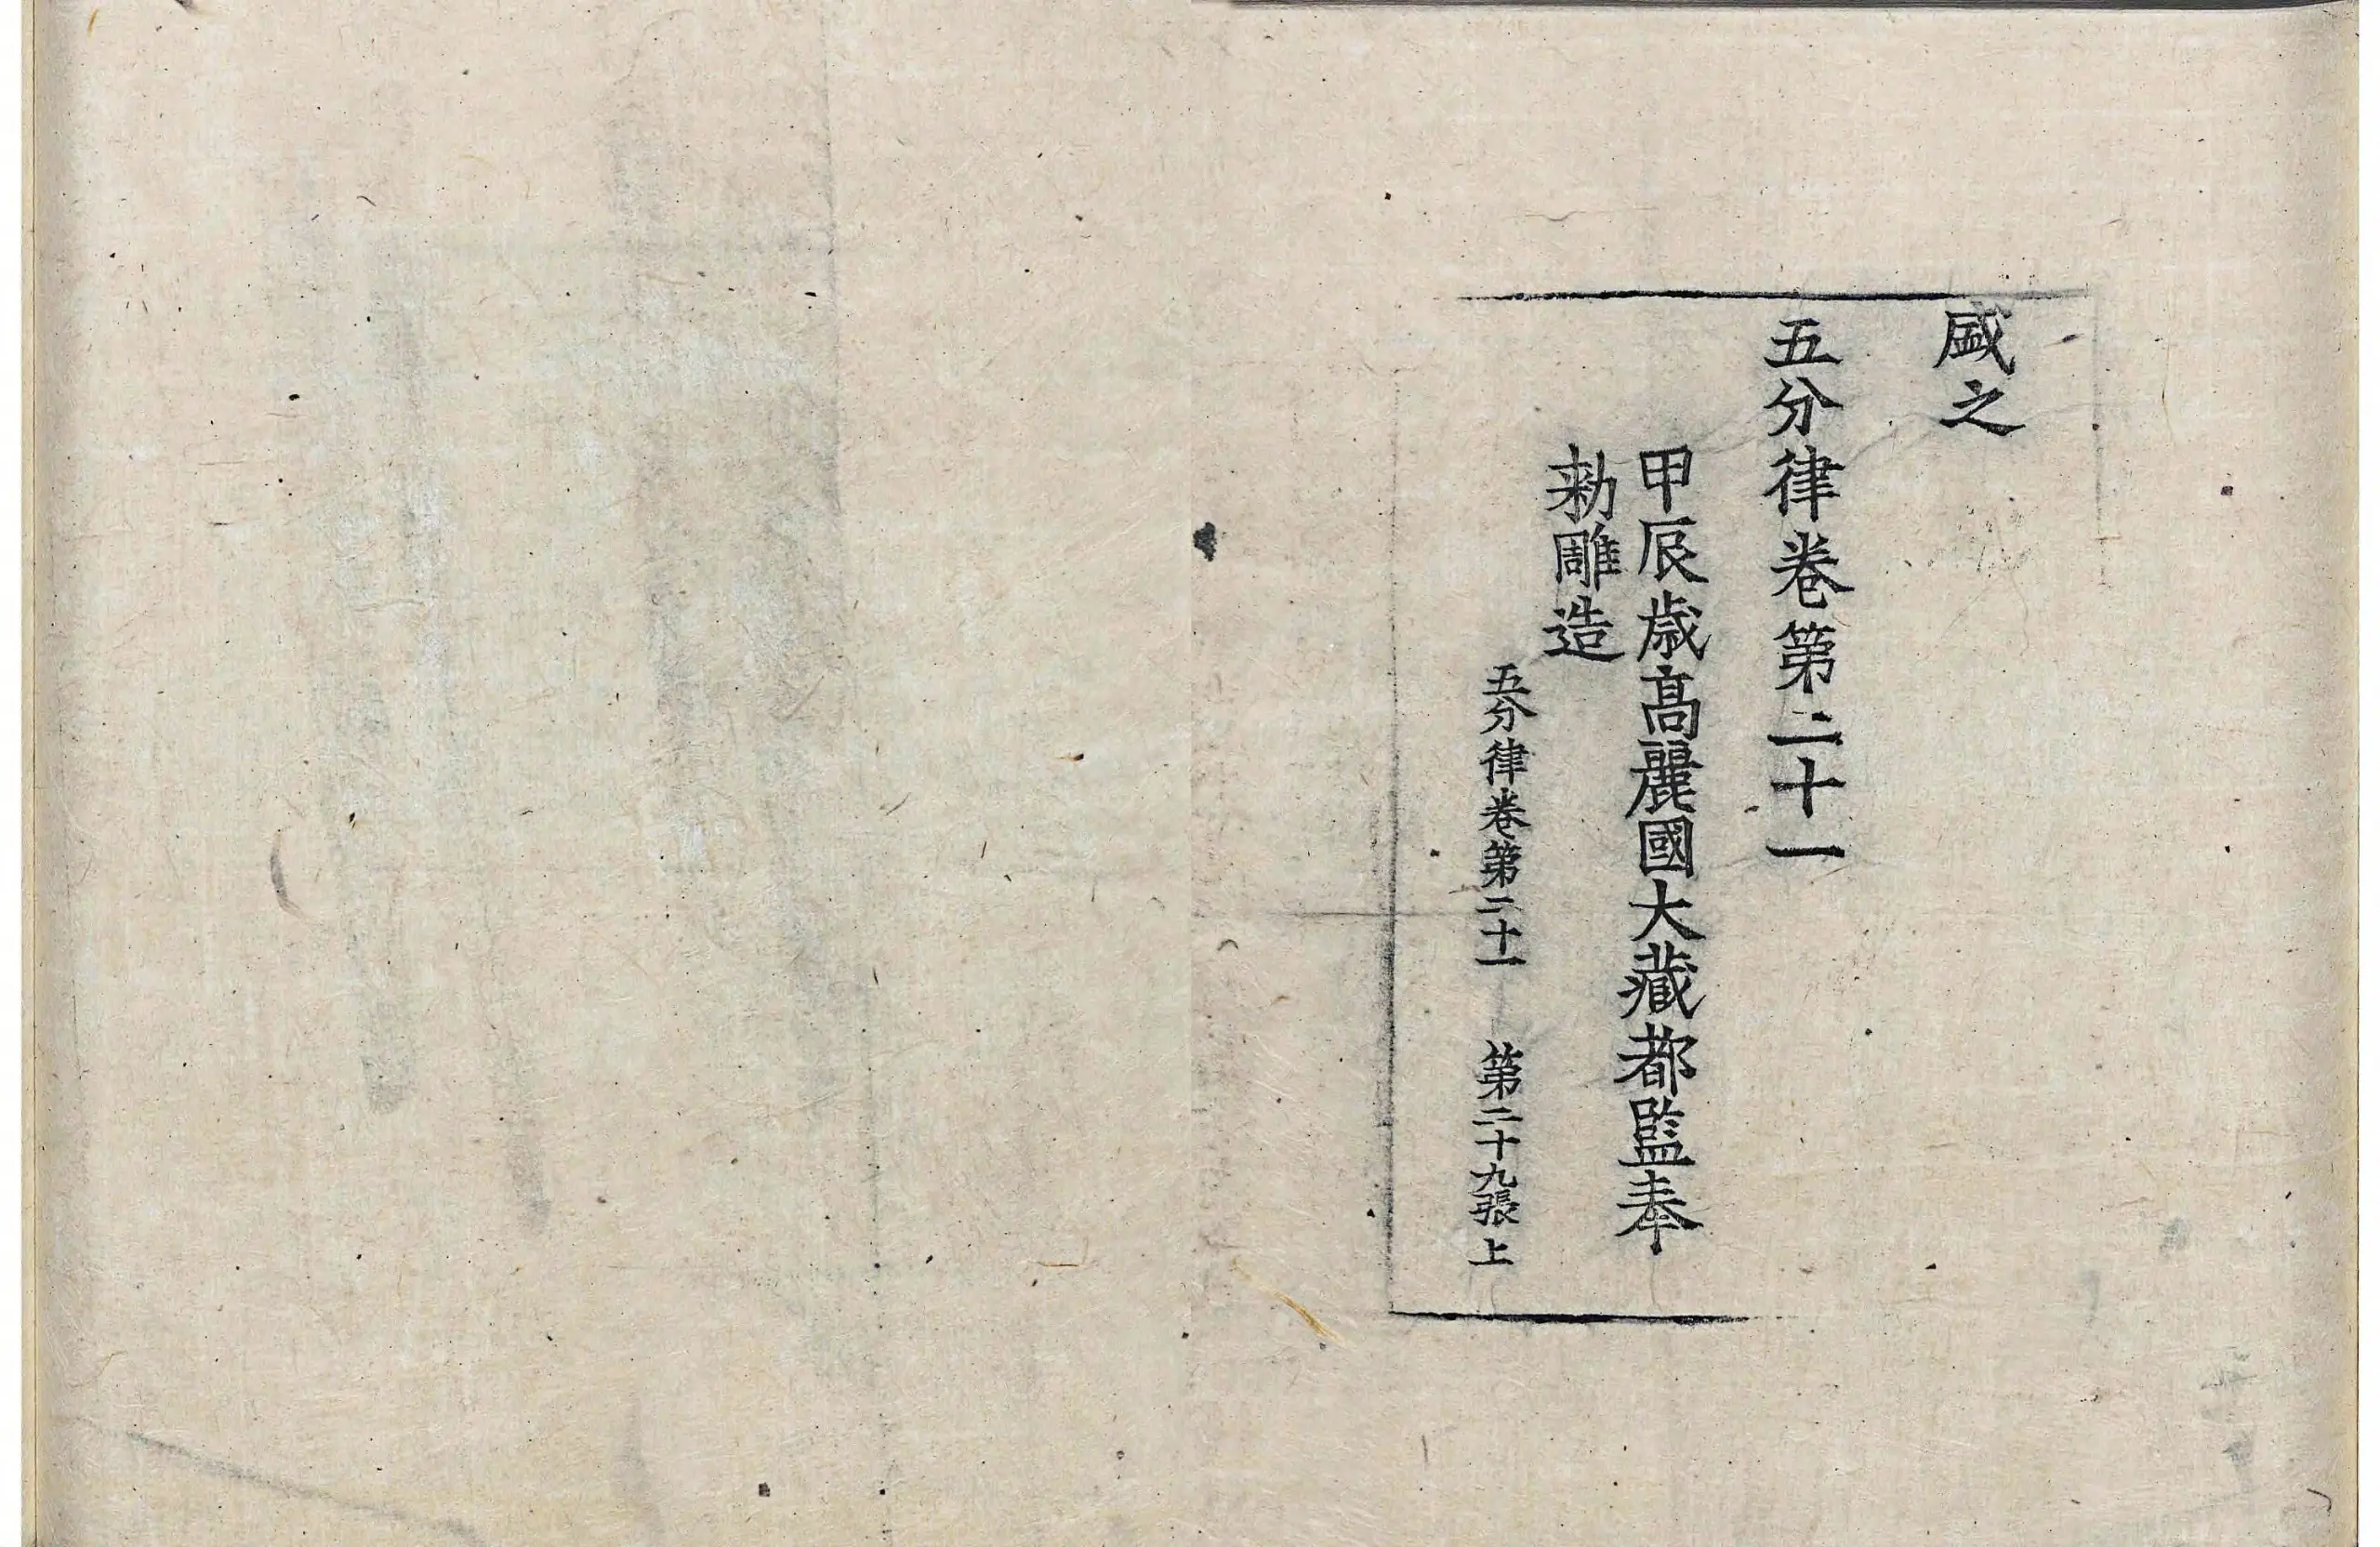 盛之
五分律卷第二十一
甲辰歲高麗國大藏都監奉
勑雕造
五分律卷第二十一 第二十九張 上